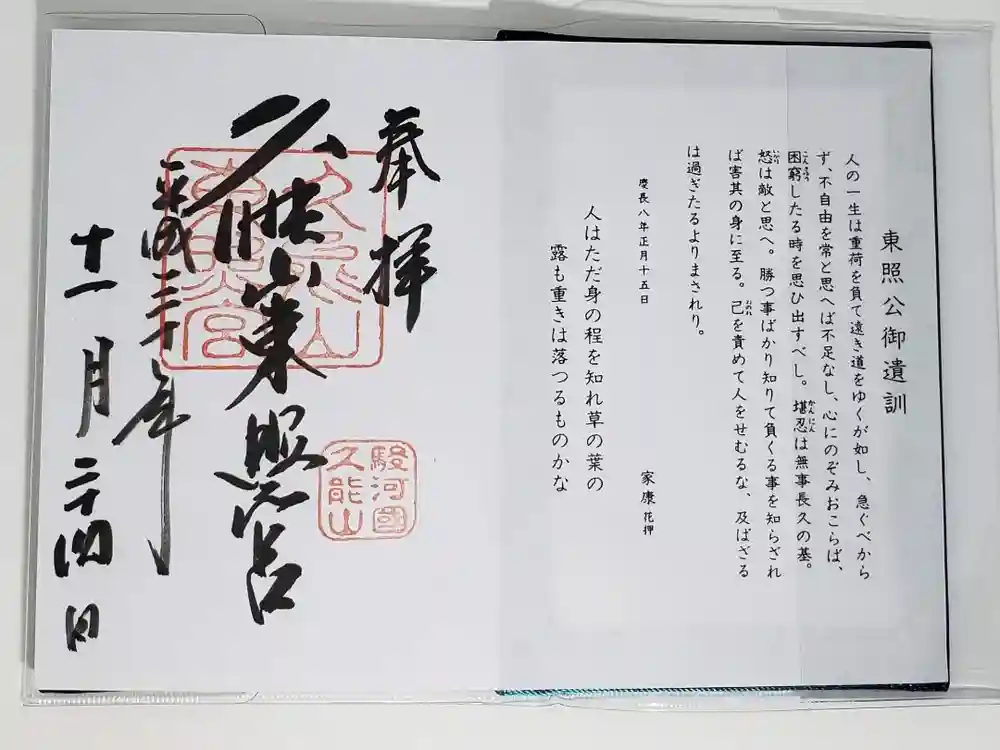 東照公御遺訓
人の一生は重荷を負て遠き道をゆくが如し、急ぐべから
ず、不自由を常と思へば不足なし、心にのぞみおこらば、
困窮したる時を思ひ出すべし。堪忍は無事長久の基。
怒は敵と思へ。勝つ事ばかり知りて負くる事を知らざれ
ば害其の身に至る。己を責めて人をせむるな、及ばざる
は過ぎたるよりまされり。
慶長八年正月十五日
家康 花押
人はただ身の程を知れ草の葉の
露も重きは落つるものかな
奉拝
久能山東照宮
平成三十年
十一月二十四日
久能山
東照宮
駿河國
久能山